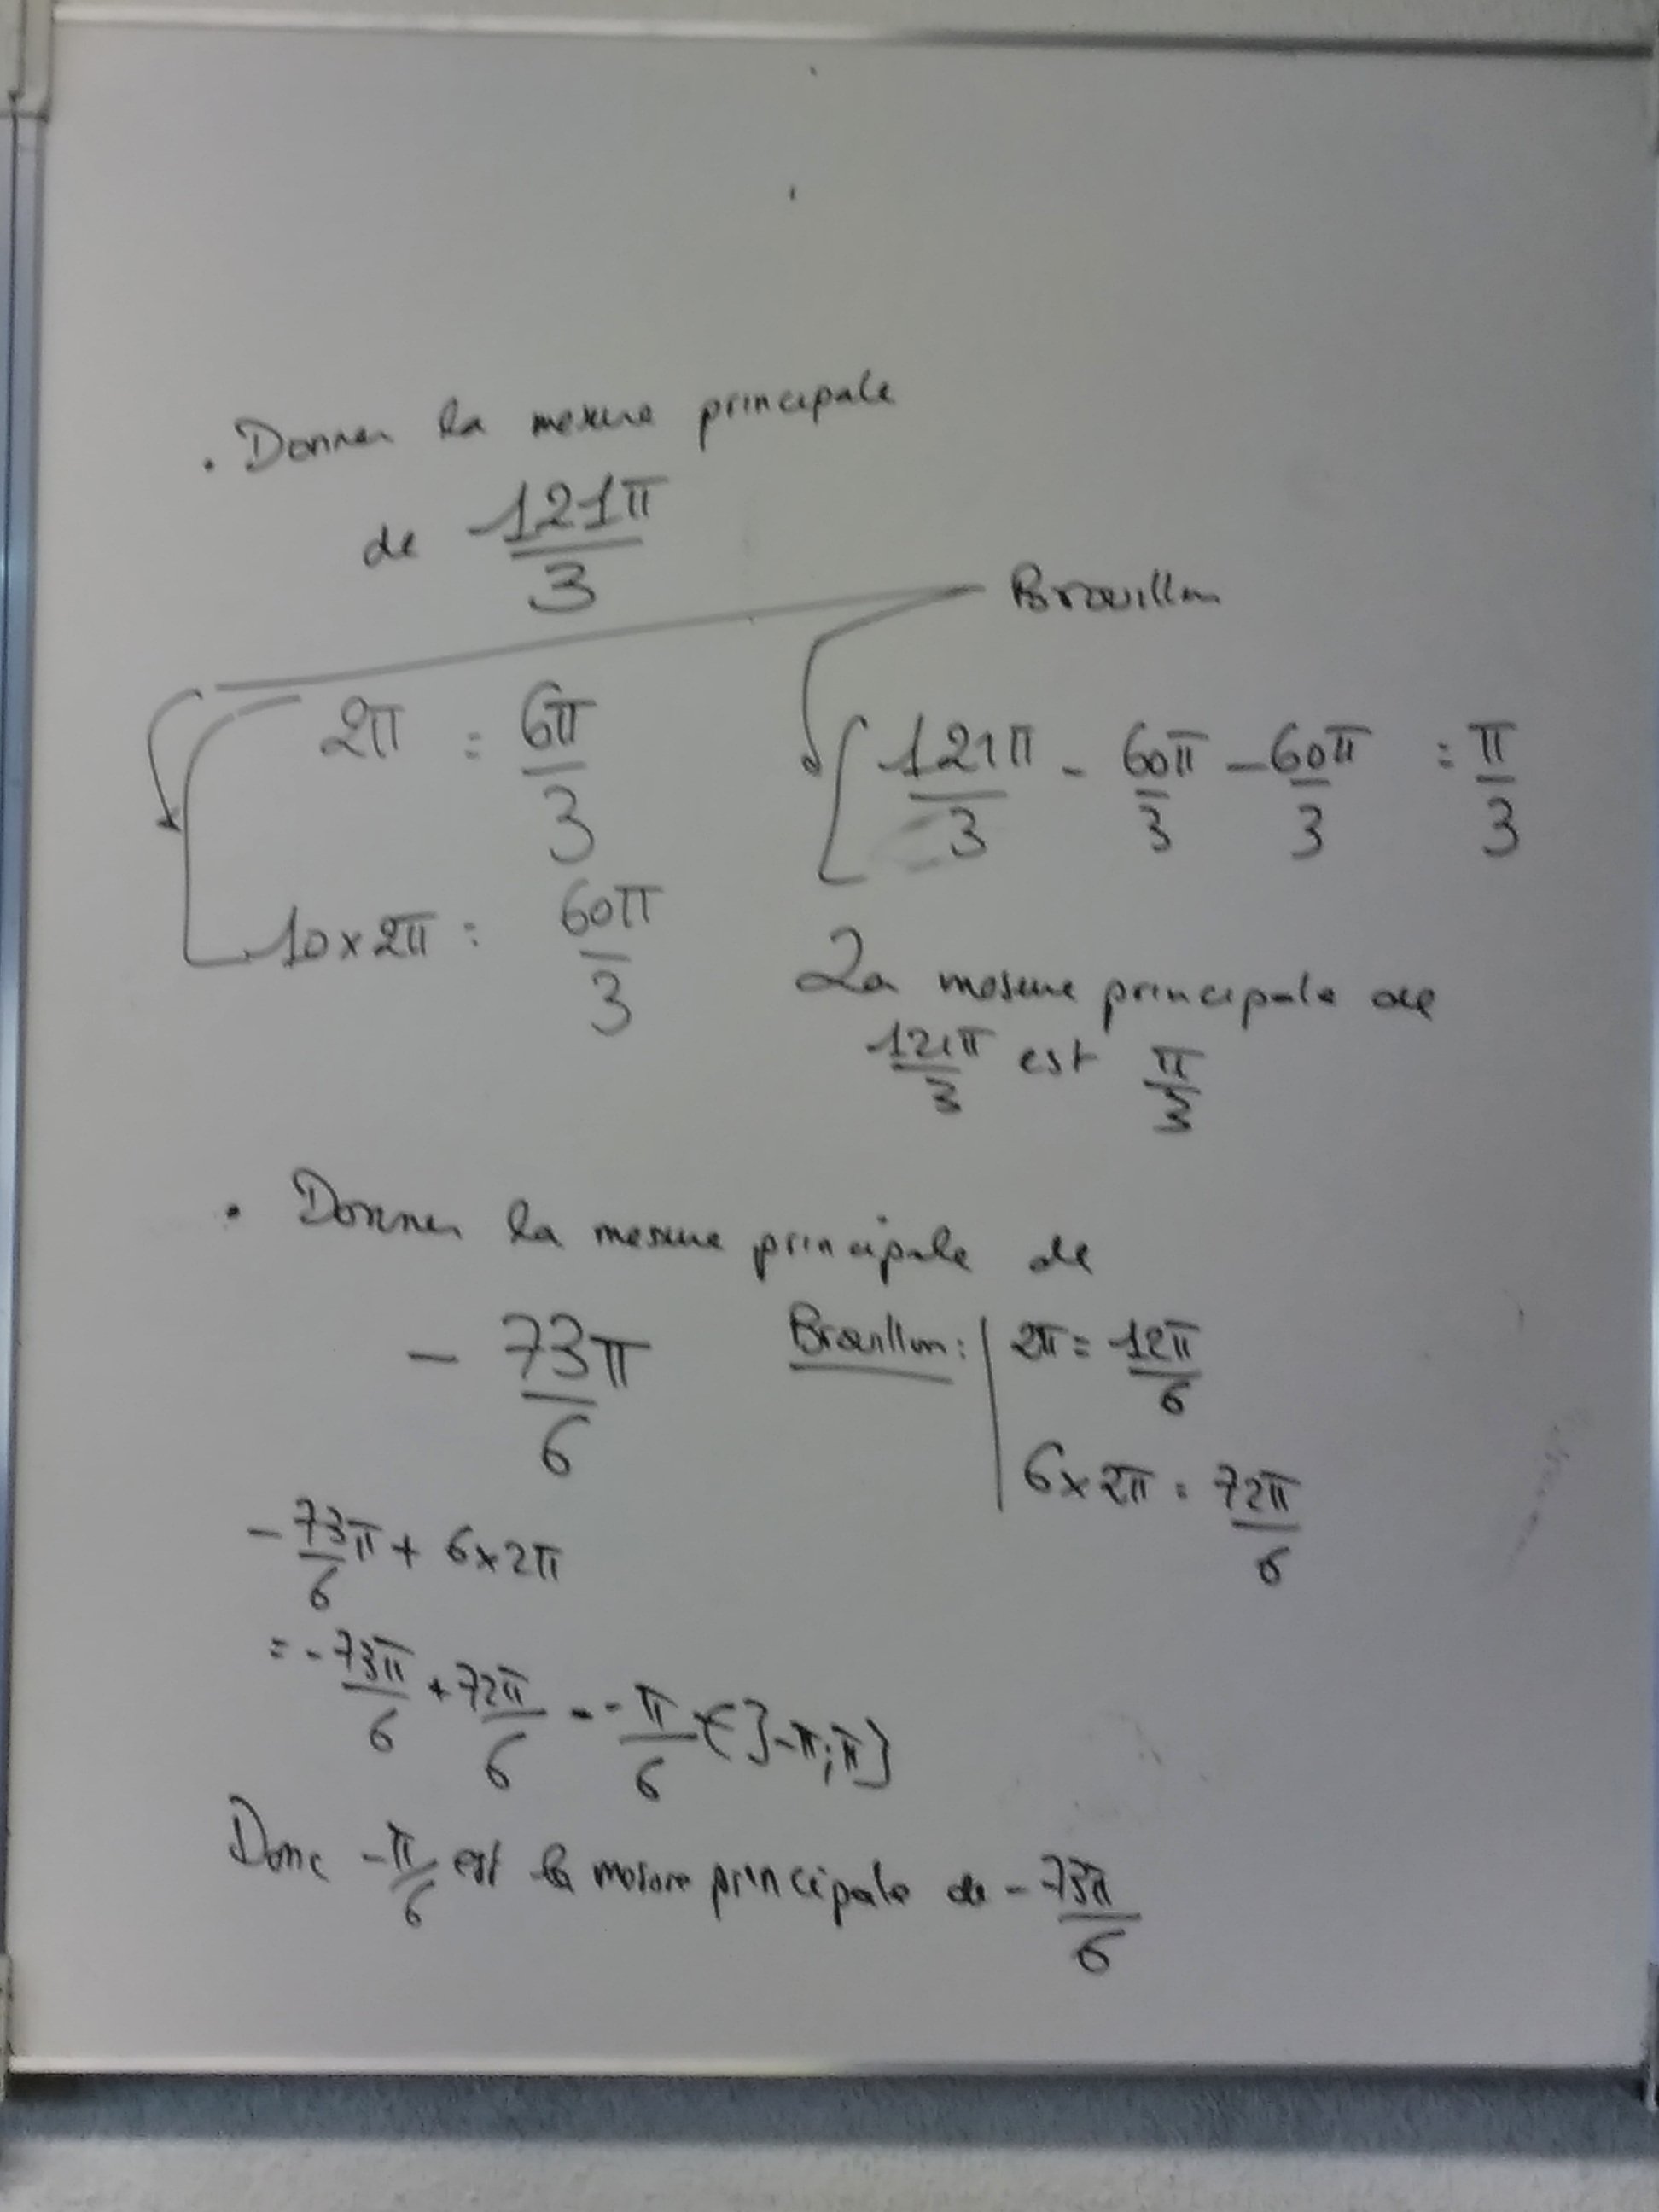 . Donner la mesure principale
de 121π/3
Brouillon
2π = 6π/3
121π/3 - 60π/3 - 60π/3 = π/3
10 x 2π = 60π/3
La mesure principale de
121π/3 est π/3
. Donner la mesure principale de
- 73π/6
Brouillon : 2π = 12π/6
6 x 2π = 72π/6
- 73π/6 + 6 x 2π
= - 73π/6 + 72π/6 = - π/6 ∈ ]-π ; π]
Donc - π/6 est la mesure principale de - 73π/6